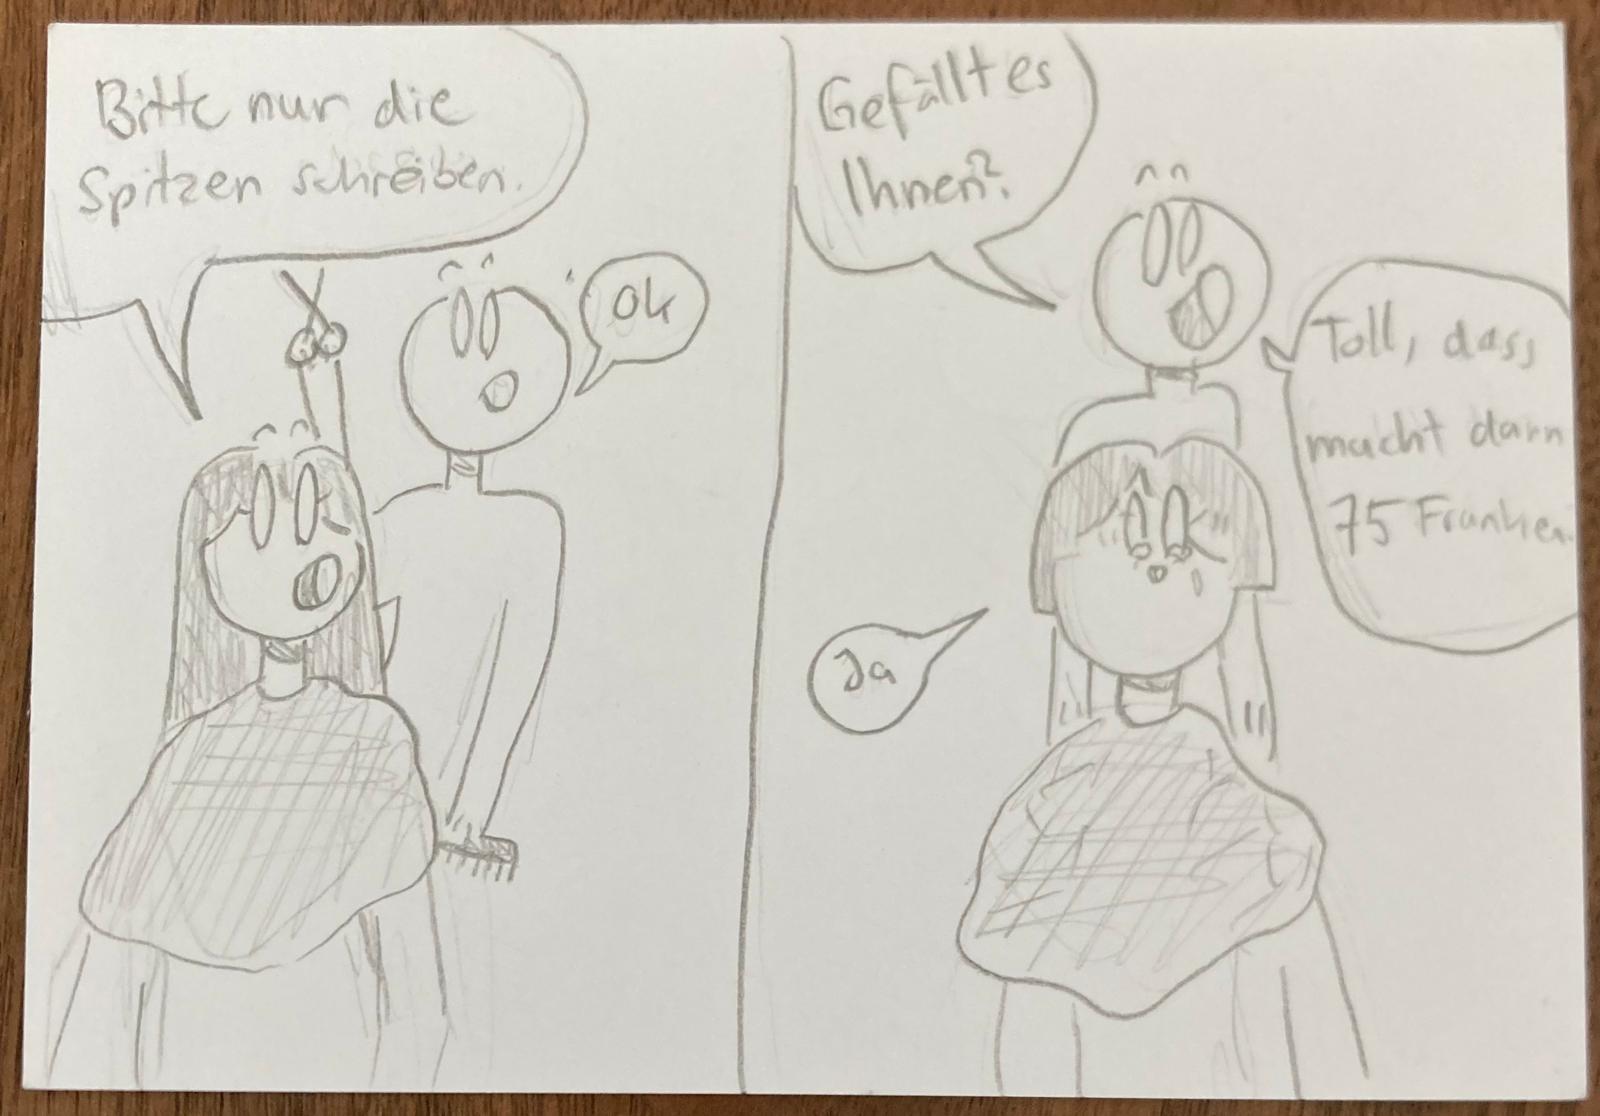 Bitte nur die
Spitzen schreiben.
Ok
Gefällt es
Ihnen?
Ja
Toll, dass
macht dann
75 Franken.